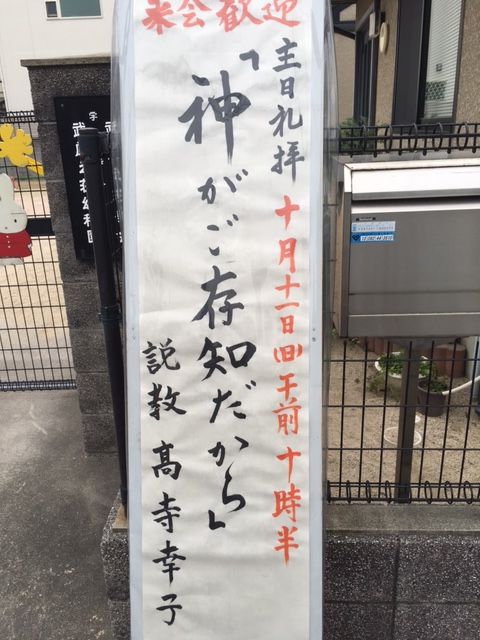 来会歓迎
主日礼拝 十月十一日(日)午前十時半
「神がご存知だから」
説教 髙寺幸子